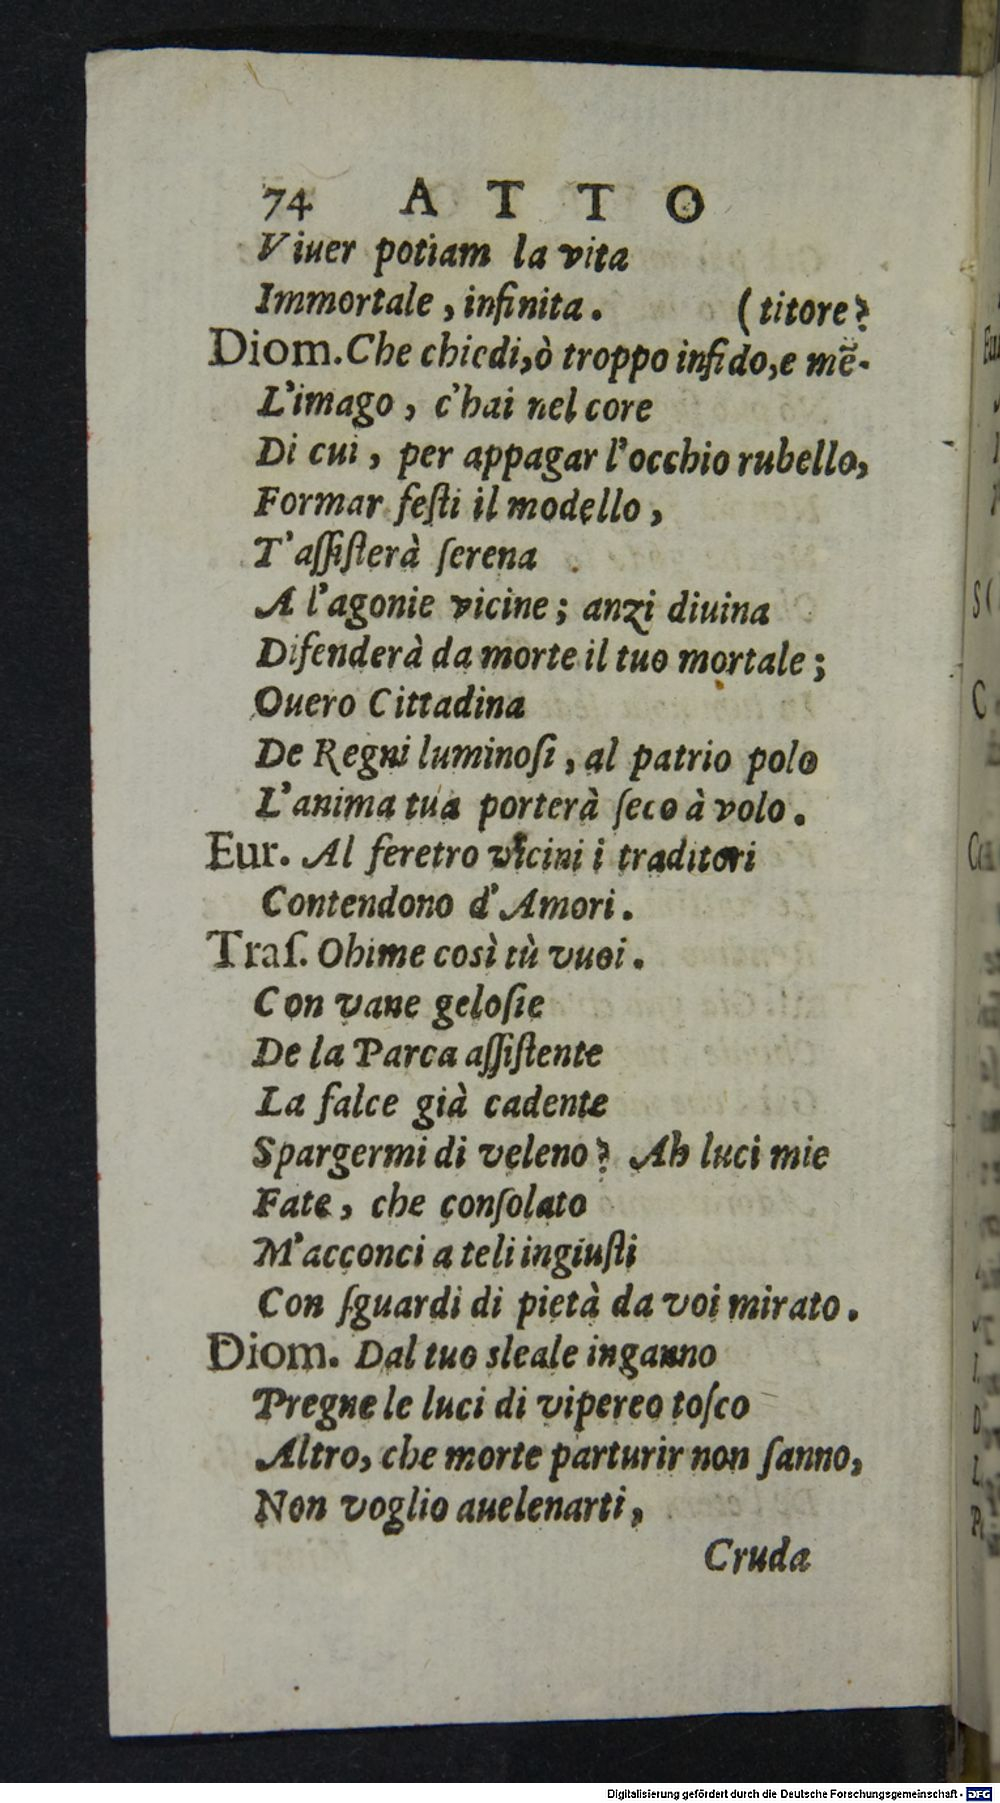 74 ATTO
Viuer potiam la vita
Immortale, infinita. (titore?
Diom. Che chiedi, ò troppo infido, e mẽ-
L'imago, c'hai nel core
Di cui, per appagar l'occhio rubello,
Formar feſti il modello,
T'aſſiſterà ſerena
A l'agonie vicine; anzi diuina
Difenderà da morte il tuo mortale;
Ouero Cittadina
De Regni luminoſi, al patrio polo
L'anima tua porterà ſeco à volo.
Eur. Al feretro vicini i traditori
Contendono d'Amori.
Traſ. Ohime così tù vuoi.
Con vane geloſie
De la Parca aſſiſtente
La falce già cadente
Spargermi di veleno? Ah luci mie
Fate, che conſolato
M'acconci a teli ingiuſti
Con ſguardi di pietà da voi mirato.
Diom. Dal tuo sleale inganno
Pregne le luci di vipereo toſco
Altro, che morte parturir non ſanno,
Non voglio auelenarti,
Cruda
Digitalisierung gefördert durch die Deutsche Forschungsgemeinschaft - DFG